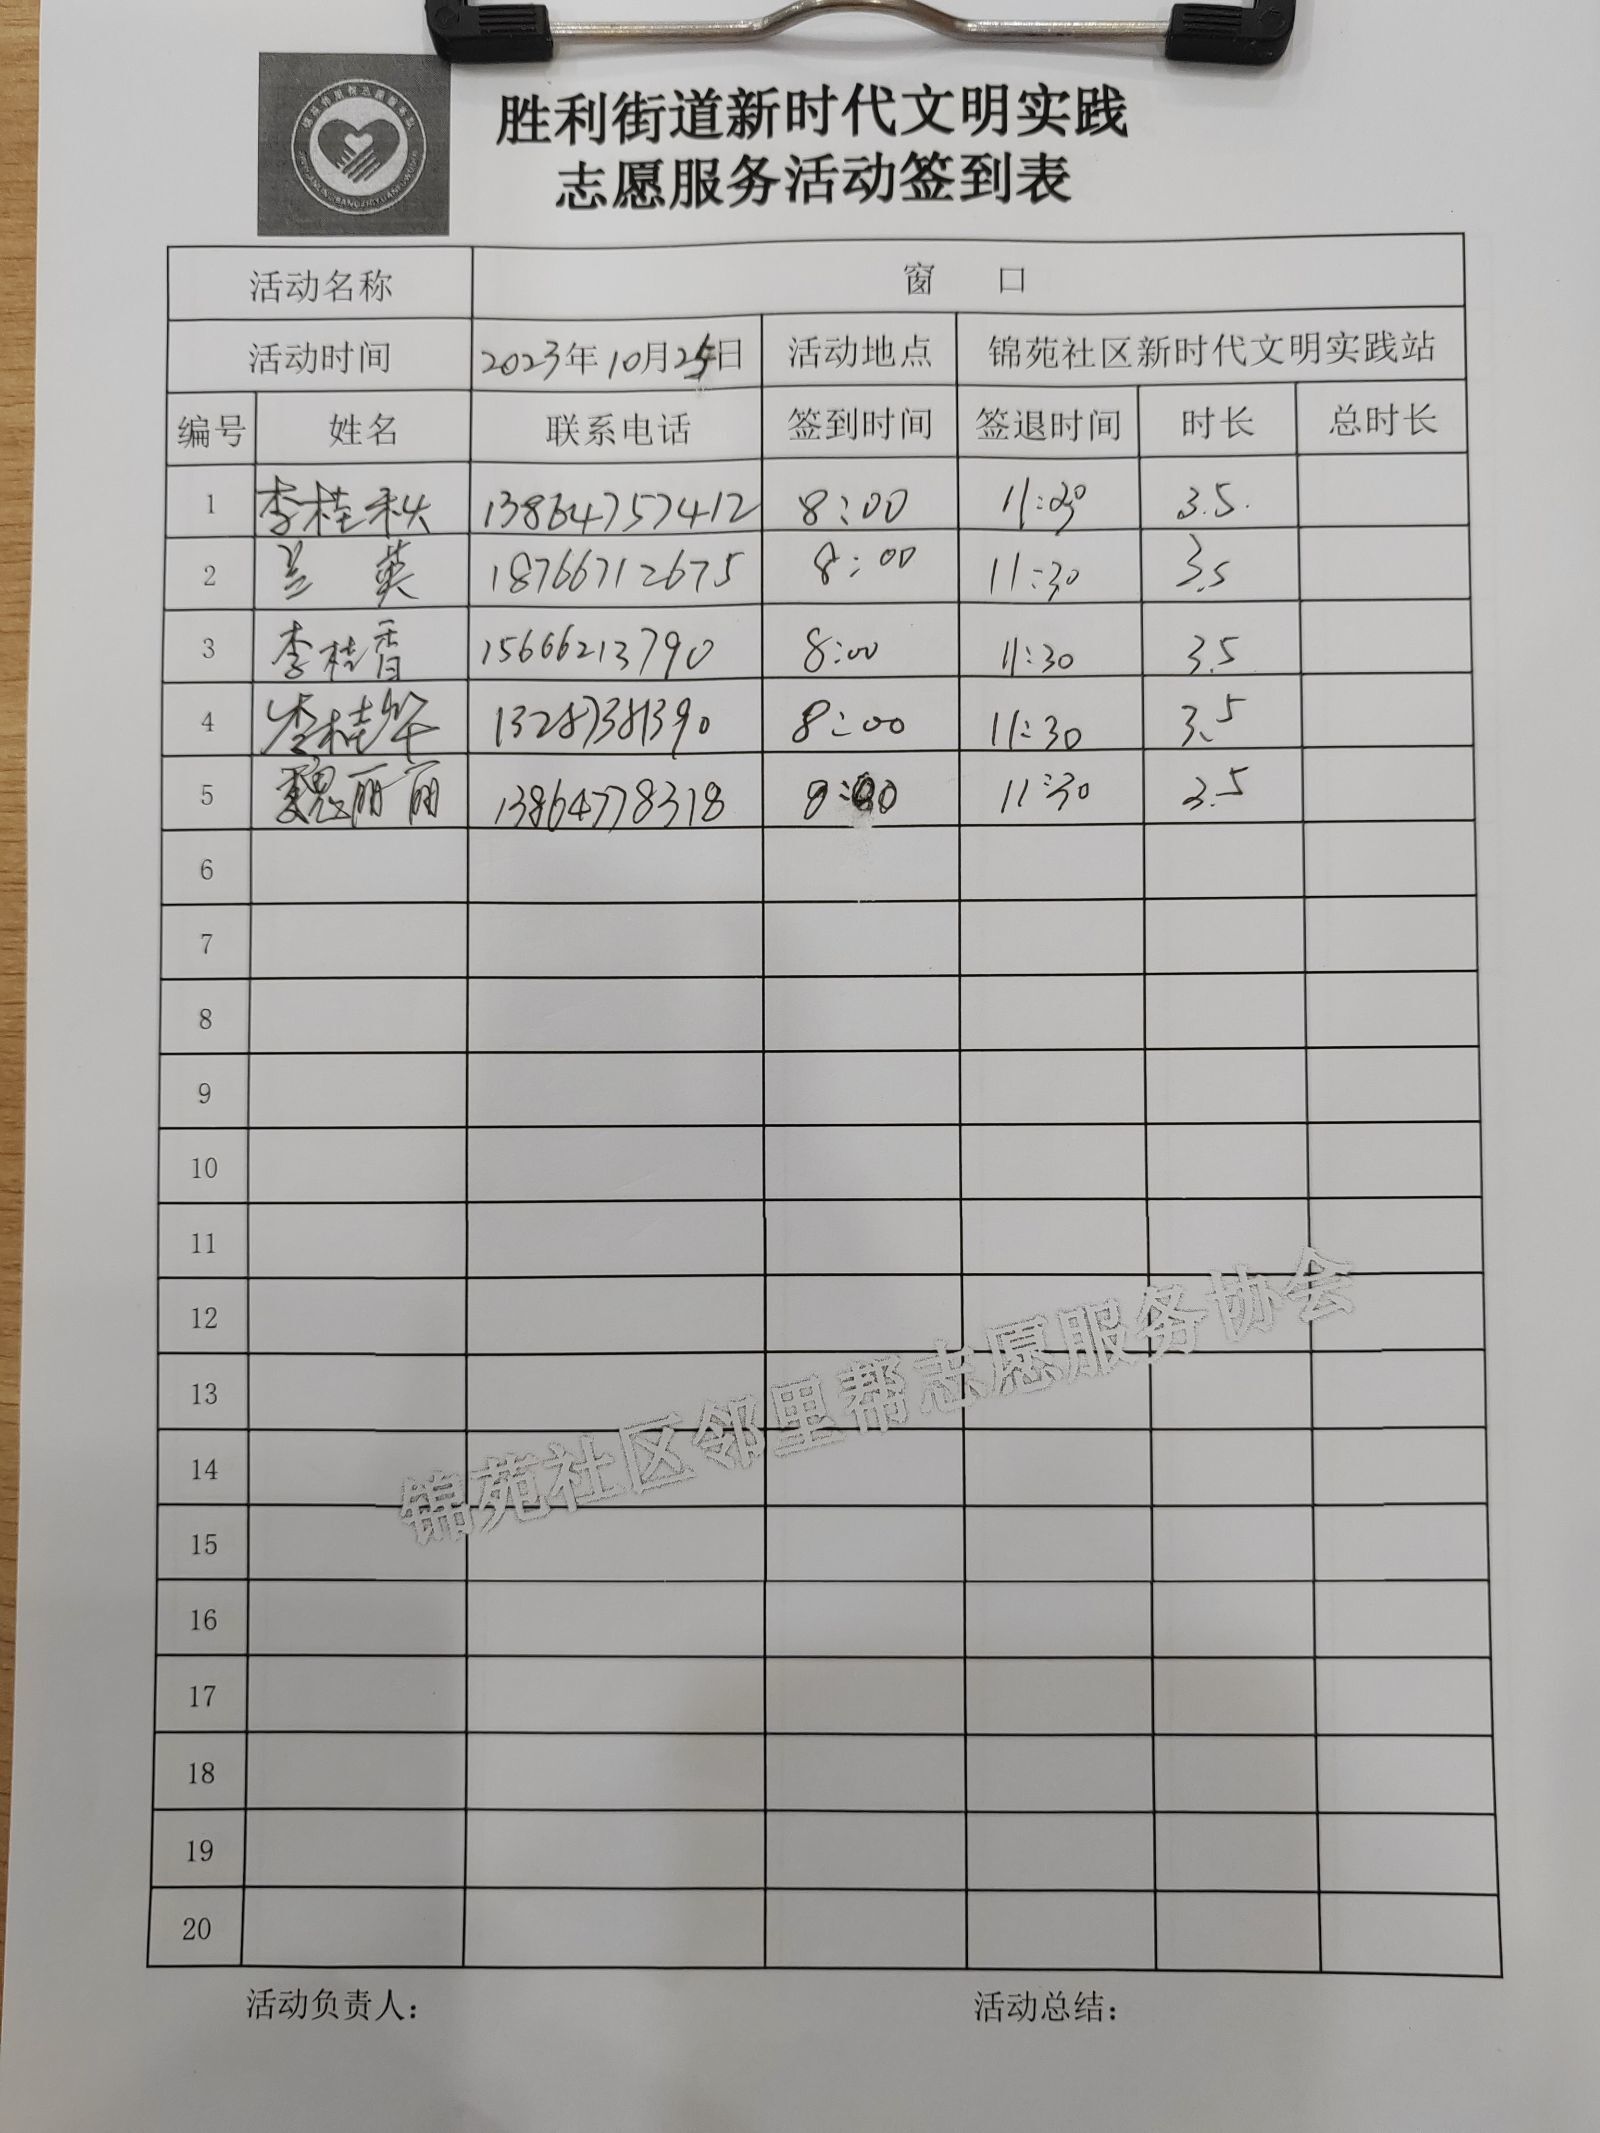 胜利街道新时代文明实践
志愿服务活动签到表
活动名称 窗 口
活动时间 2023年10月25日 活动地点 锦苑社区新时代文明实践站
编号 姓名 联系电话 签到时间 签退时间 时长 总时长
1 李桂秋 13864757412 8:00 11:30 3.5.
2 兰英 18766712675 8:00 11:30 3.5
3 李桂香 15666213790 8:00 11:30 3.5
4 李桂华 13287381390 8:00 11:30 3.5
5 魏丽丽 13864778318 8:00 11:30 3.5
6
7
8
9
10
11
12
13
14
15
16
17
18
19
20
锦苑社区邻里帮志愿服务协会
活动负责人: 活动总结: